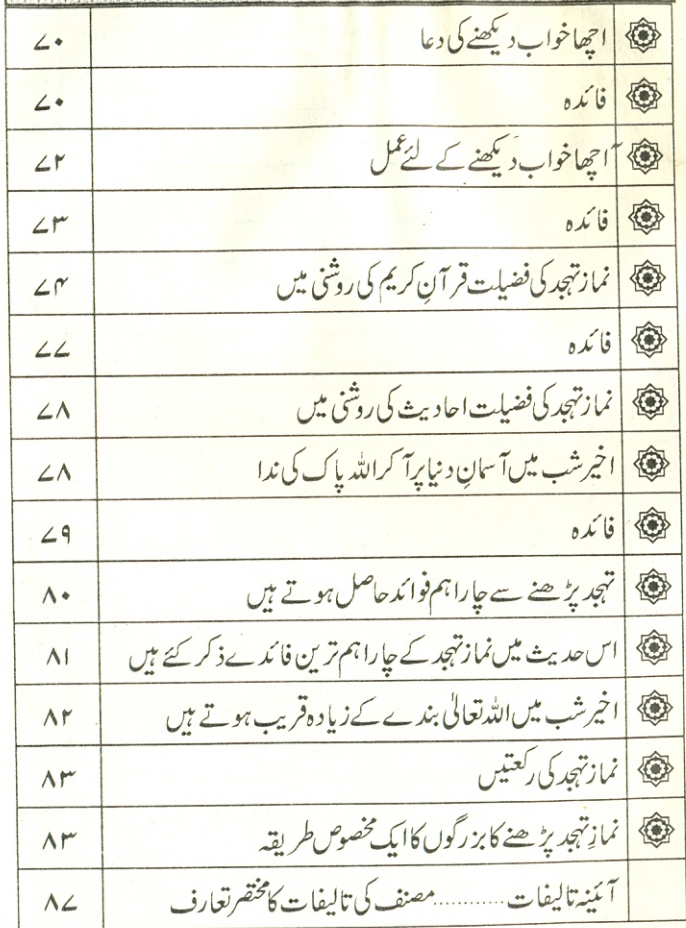 اچھا خواب دیکھنے کی دعا ۷۰
فائدہ ۷۰
اچھا خواب دیکھنے کے لئے عمل ۷۲
فائدہ ۷۳
نماز تہجد کی فضیلت قرآنِ کریم کی روشنی میں ۷۴
فائدہ ۷۷
نماز تہجد کی فضیلت احادیث کی روشنی میں ۷۸
اخیر شب میں آسمانِ دنیا پر آ کر اللہ پاک کی ندا ۷۸
فائدہ ۷۹
تہجد پڑھنے سے چار اہم فوائد حاصل ہوتے ہیں ۸۰
اس حدیث میں نماز تہجد کے چار اہم ترین فائدے ذکر کئے ہیں ۸۱
اخیر شب میں اللہ تعالیٰ بندے کے زیادہ قریب ہوتے ہیں ۸۲
نماز تہجد کی رکعتیں ۸۳
نمازِ تہجد پڑھنے کا بزرگوں کا ایک مخصوص طریقہ ۸۳
آئینہ تالیفات ............ مصنف کی تالیفات کا مختصر تعارف ۸۷